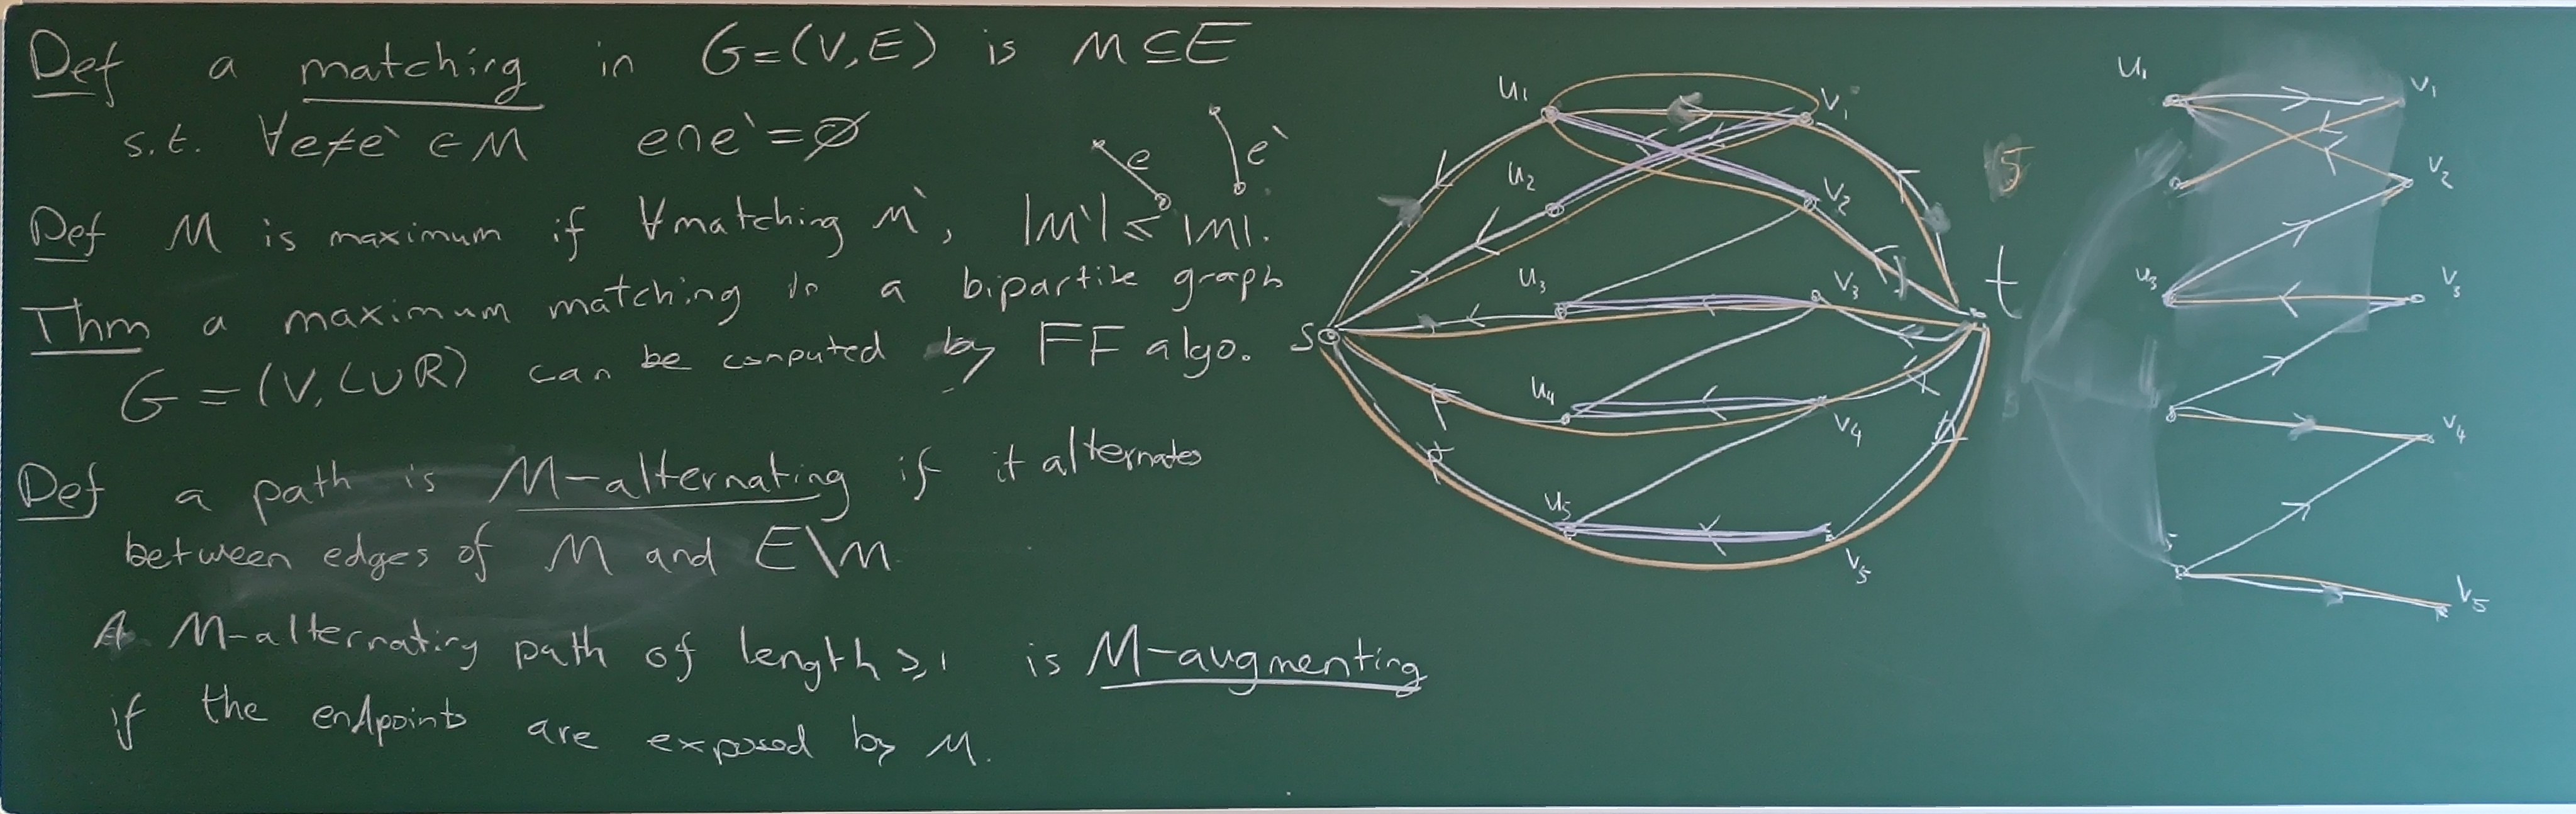 Def a matching in G=(V,E) is M⊆E
s.t. ∀e≠e' ∈M e∩e'=∅
e e'
Def M is maximum if ∀matching M', |M'| ≤ |M|.
Thm a maximum matching in a bipartite graph
G=(V, L∪R) can be computed by FF algo.
Def a path is M-alternating if it alternates
between edges of M and E\M.
A M-alternating path of length ≥1 is M-augmenting
if the endpoints are exposed by M.
u1 v1
u2 v2
u3 v3
s t
u4 v4
u5 v5
5
u1 v1
v2
u3 v3
v4
5 v5